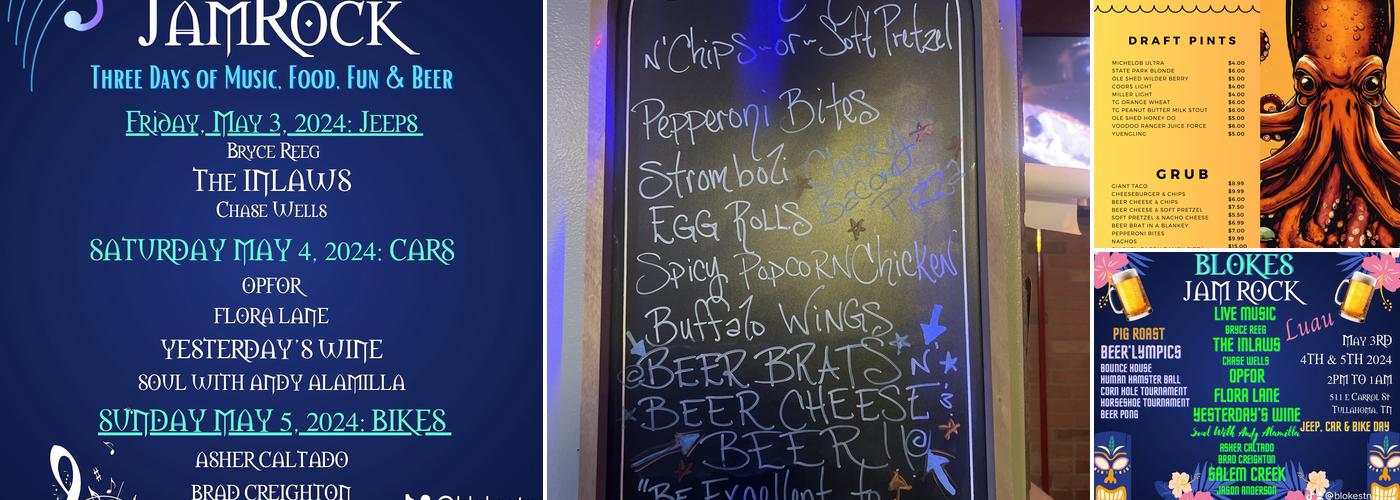 JAMROCK
THREE DAYS OF MUSIC, FOOD, FUN & BEER
FRIDAY, MAY 3, 2024: JEEPS
BRYCE REEG
THE INLAWS
CHASE WELLS
SATURDAY MAY 4, 2024: CARS
OPFOR
FLORA LANE
YESTERDAY'S WINE
SOUL WITH ANDY ALAMILLA
SUNDAY MAY 5, 2024: BIKES
ASHER CALTADO
BRAD CREIGHTON
N' Chips ~or~ Soft Pretzel
Pepperoni Bites
Stromboli
Chicky
Bacon
Pizza
EGG ROLLS
Spicy POPCORN Chicken
Buffalo WiNGS
BEER BRATS N'
BEER CHEESE
BEER !!
"BE Excellent to
DRAFT PINTS
MICHELOB ULTRA $4.00
STATE PARK BLONDE $6.00
OLE SHED WILDER BERRY $5.00
COORS LIGHT $4.00
MILLER LIGHT $4.00
TG ORANGE WHEAT $6.00
TG PEANUT BUTTER MILK STOUT $6.00
OLE SHED HONEY DO $5.00
VOODOO RANGER JUICE FORCE $6.00
YUENGLING $5.00
GRUB
GIANT TACO $8.99
CHEESEBURGER & CHIPS $9.99
BEER CHEESE & CHIPS $6.00
BEER CHEESE & SOFT PRETZEL $7.50
SOFT PRETZEL & NACHO CHEESE $5.50
BEER BRAT IN A BLANKEY $6.99
PEPPERONI BITES $7.00
NACHOS $9.99
$15.00
BLOKES
JAM ROCK
Luau
LIVE MUSIC
BRYCE REEG
THE INLAWS
CHASE WELLS
OPFOR
FLORA LANE
YESTERDAY'S WINE
Soul With Andy Alamilla
ASHER CALTADO
BRAD CREIGHTON
SALEM CREEK
JASON ANDERSON
PIG ROAST
BEER'LYMPICS
BOUNCE HOUSE
HUMAN HAMSTER BALL
CORN HOLE TOURNAMENT
HORSESHOE TOURNAMENT
BEER PONG
MAY 3RD
4TH & 5TH 2024
2PM TO 1AM
511 E CARROL ST
TULLAHOMA, TN
JEEP, CAR & BIKE DAY